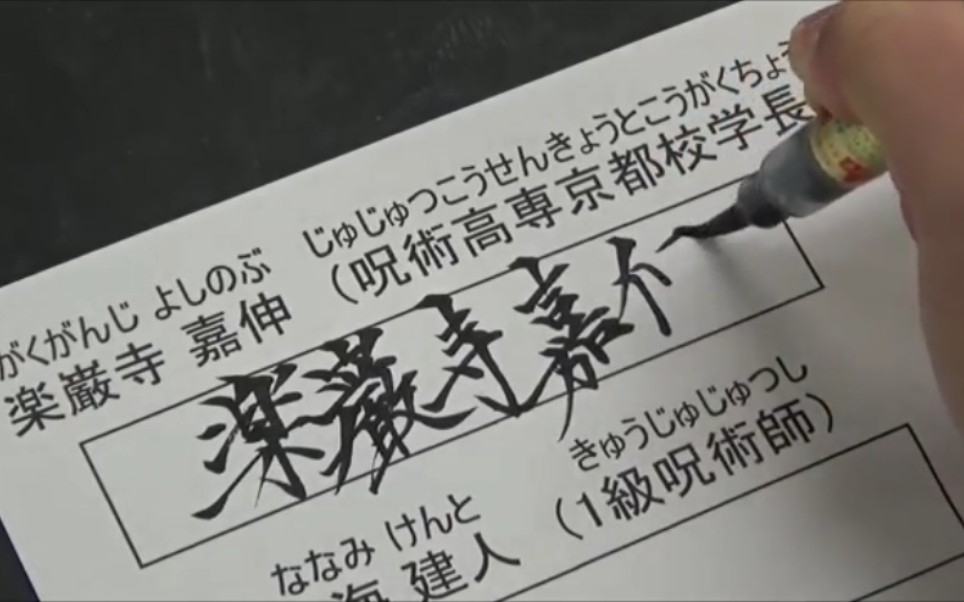 がくがんじ よしのぶ じゅじゅつこうせんきょうとこうがくちょう
楽巌寺 嘉伸 (呪術高専京都校学長
楽巌寺嘉
ななみ けんと きゅうじゅじゅつし
海 建人 (1級呪術師)